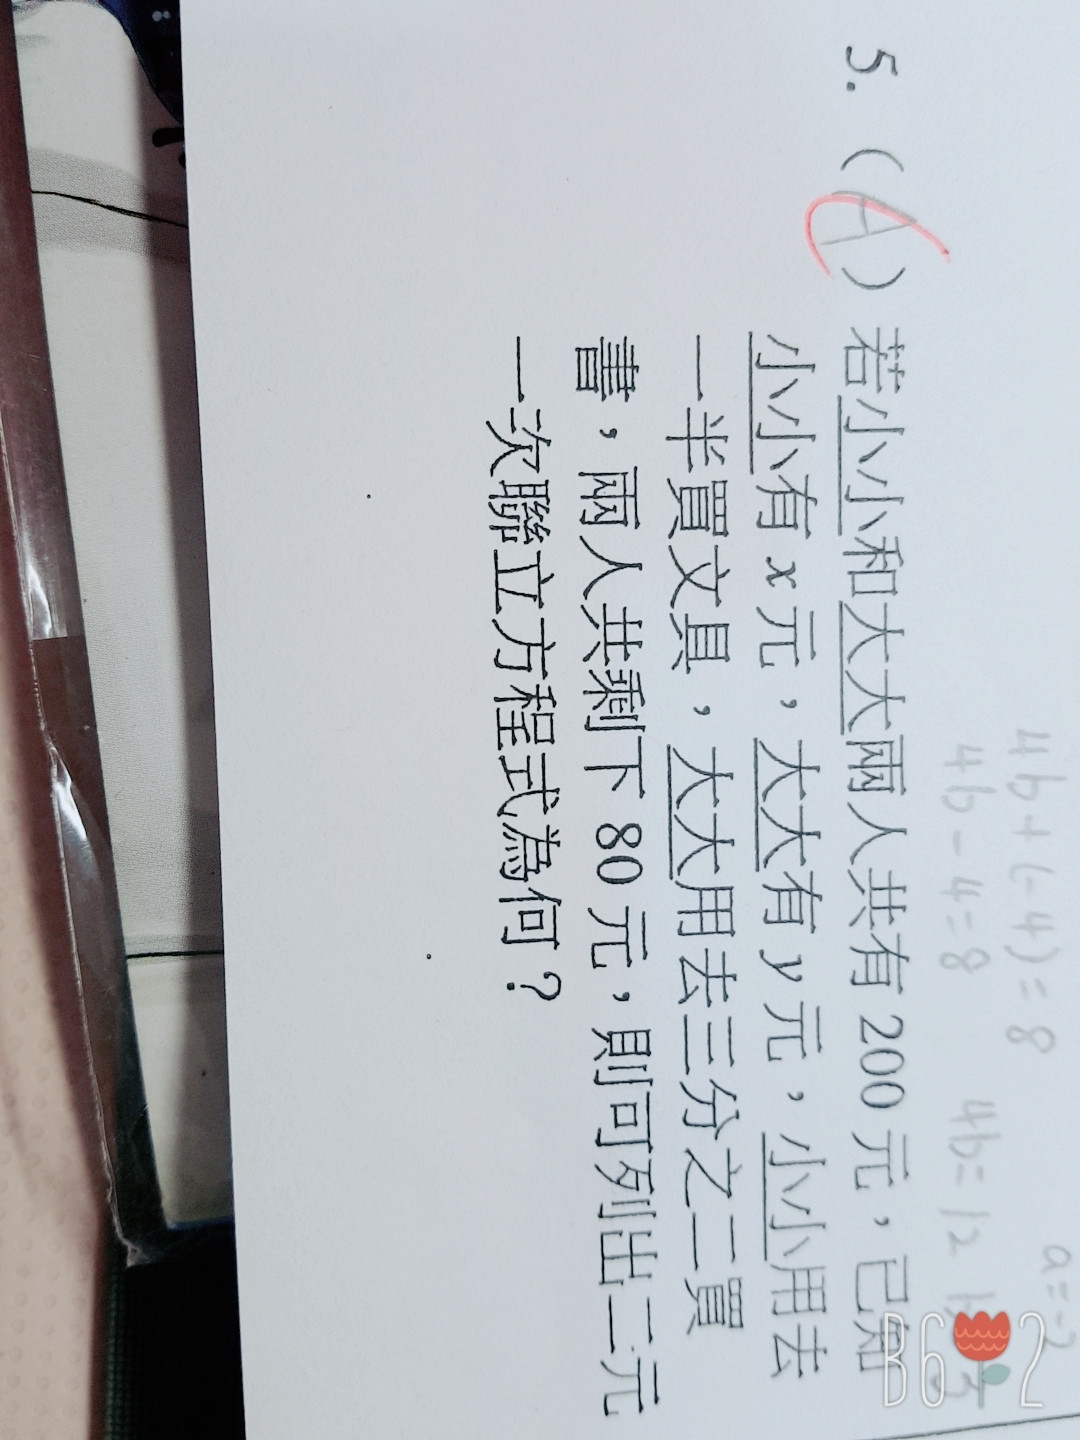 4b+(-4)=8
a=-2
4b-4=8
4b=12
5.(A)若小小和大大兩人共有 200 元，已知
小小有 x 元，大大有 y 元，小小用去
一半買文具，大大用去三分之二買
書，兩人共剩下 80 元，則可列出二元
一次聯立方程式為何？
B612